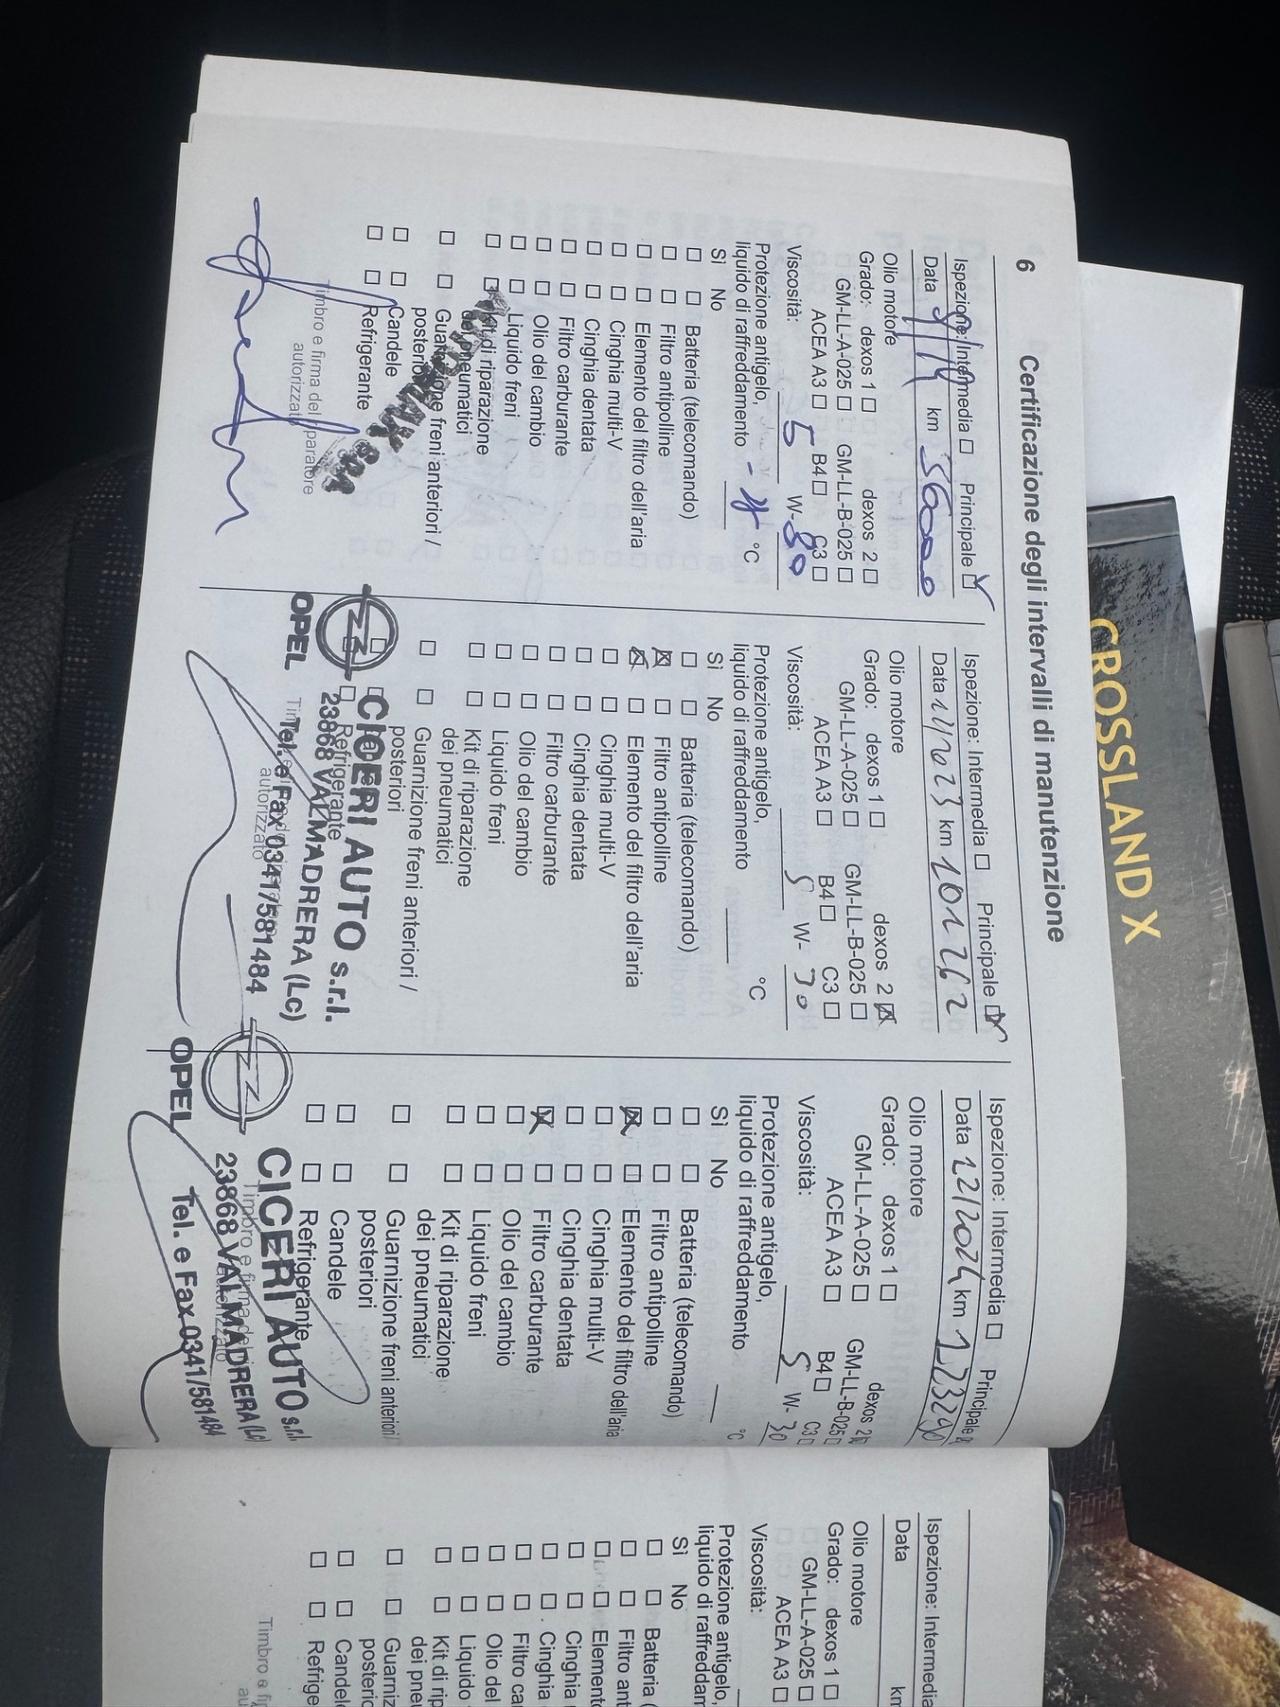 6 Certificazione degli intervalli di manutenzione
Ispezione: Intermedia Principale
Data km 56000
Olio motore
Grado: dexos 1 dexos 2
GM-LL-A-025 GM-LL-B-025
ACEA A3 B4 C3
Viscosità: 5 W-30
Protezione antigelo,
liquido di raffreddamento °C
Sì No
Batteria (telecomando)
Filtro antipolline
Elemento del filtro dell'aria
Cinghia multi-V
Cinghia dentata
Filtro carburante
Olio del cambio
Liquido freni
Kit di riparazione
dei pneumatici
Guarnizione freni anteriori /
posteriori
Candele
Refrigerante
Timbro e firma del riparatore
autorizzato
Ispezione: Intermedia Principale
Data 11/2023 km 101262
Olio motore
Grado: dexos 1 dexos 2
GM-LL-A-025 GM-LL-B-025
ACEA A3 B4 C3
Viscosità: 5 W-30
Protezione antigelo,
liquido di raffreddamento °C
Sì No
Batteria (telecomando)
Filtro antipolline
Elemento del filtro dell'aria
Cinghia multi-V
Cinghia dentata
Filtro carburante
Olio del cambio
Liquido freni
Kit di riparazione
dei pneumatici
Guarnizione freni anteriori /
posteriori
Refrigerante
autorizzato
OPEL
CICERI AUTO s.r.l.
23868 VALMADRERA (Lc)
Tel. e Fax 0341/581484
Ispezione: Intermedia Principale
Data 12/2024 km 123290
Olio motore
Grado: dexos 1 dexos 2
GM-LL-A-025 GM-LL-B-025
ACEA A3 B4 C3
Viscosità: 5 W-30
Protezione antigelo,
liquido di raffreddamento °C
Sì No
Batteria (telecomando)
Filtro antipolline
Elemento del filtro dell'aria
Cinghia multi-V
Cinghia dentata
Filtro carburante
Olio del cambio
Liquido freni
Kit di riparazione
dei pneumatici
Guarnizione freni anteriori /
posteriori
Candele
Refrigerante
Timbro e firma del
autorizzato
OPEL
CICERI AUTO s.r.l.
23868 VALMADRERA (Lc)
Tel. e Fax 0341/581484
Ispezione: Intermedia
Data km
Olio motore
Grado: dexos 1
GM-LL-A-025
ACEA A3
Viscosità:
Protezione antigelo,
liquido di raffreddam
Sì No
Batteria (
Filtro ant
Elemento
Cinghia
Cinghia
Filtro ca
Olio del
Liquido
Kit di rip
dei pne
Guarniz
posterio
Candele
Refrige
Timbro e fi
au
CROSSLAND X